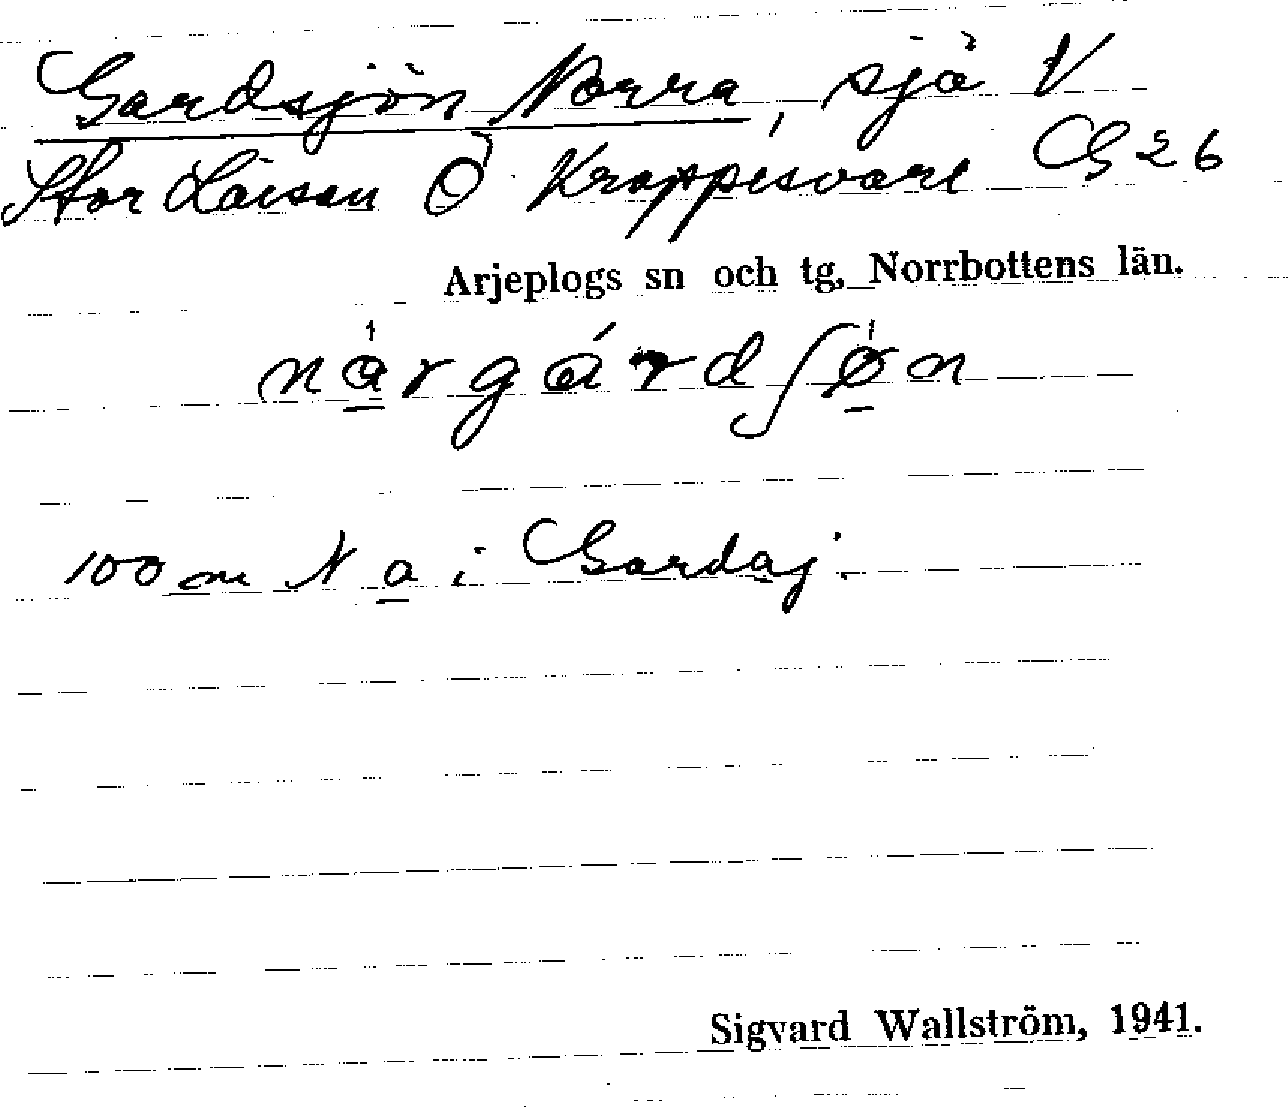 Gardsjön Norra, sjö V
Stor Laisan Ö Krappesvare G 26
Arjeplogs sn och tg, Norrbottens län.
når gárdʃøn
100 m N a i Gardaj.
Sigvard Wallström, 1941.